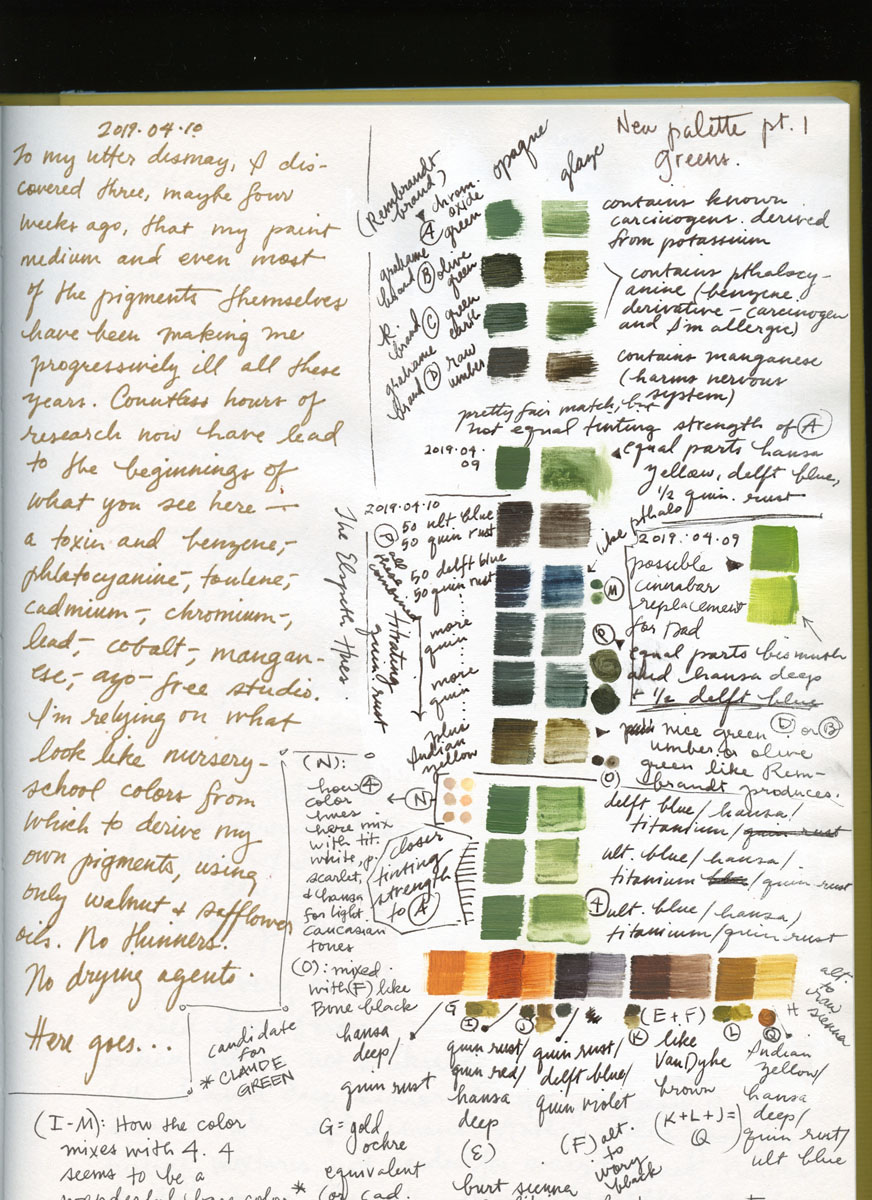 2019.04.10
To my utter dismay, I dis-
covered three, maybe four
weeks ago, that my paint
medium and even most
of the pigments themselves
have been making me
progressively ill all these
years. Countless hours of
research now have lead
to the beginnings of
what you see here —
a toxin and benzene-,
phlatocyanine-, toulene-,
cadmium-, chromium-,
lead-, cobalt-, mangan-
ese-, azo-free studio.
I'm relying on what
look like nursery-
school colors from
which to derive my
own pigments, using
only walnut & safflower
oils. No thinners.
No drying agents.
Here goes...
New palette pt. 1
greens.
opaque
glaze
(Rembrandt
brand)
A chrom.
oxide
green
grahame
brand B olive
green
R.
brand C green
earth
grahame
brand D raw
umber
contains known
carcinogens derived
from potassium
contains pthalocy-
anine (benzene
derivative - carcinogen
and I'm allergic)
contains manganese
(harms nervous
system)
pretty fair match, but
not equal tinting strength of A
2019.04.
09
equal parts hansa
yellow, delft blue,
1/2 quin. rust
The Elspeth Hues.
2019.04.10
50 ult. blue
50 quin rust
50 delft blue
50 quin rust
more
quin
more
quin
plus
Indian
yellow
P all
these
combined
titrating
quin. rust
like
pthalo
M
P
O
2019.04.09
possible
cinnabar
replacement
for Dad
equal parts bismuth
and hansa deep
+ 1/2 delft blue
nice green D or B
umber or olive
green like Rem-
brandt produces.
(N):
how 4
color
hues
here mix
with tit.
white, p.
scarlet,
& hansa
for light
caucasian
tones
N
closer
tinting
strength
to A
delft blue/hansa/
titanium/quin rust
ult. blue/hansa/
titanium blue/quin rust
4 ult. blue/hansa/
titanium/quin rust
(O): mixed
with (F) like
Bone black
G
I
J
K
(E+F)
L
Q
H
alt.
to
raw
sienna
hansa
deep/
quin rust
G = gold
ochre
equivalent
quin rust/
quin red/
hansa
deep
(E)
burt sienna
quin rust/
delft blue/
quin violet
(F) alt.
to
ivory
black
like
VanDyke
brown
(K+L+J=)
Q
Indian
yellow/
hansa
deep/
quin rust/
ult blue
candidate
for
* CLAUDE
GREEN
(I-M): How the color
mixes with 4. 4
seems to be a